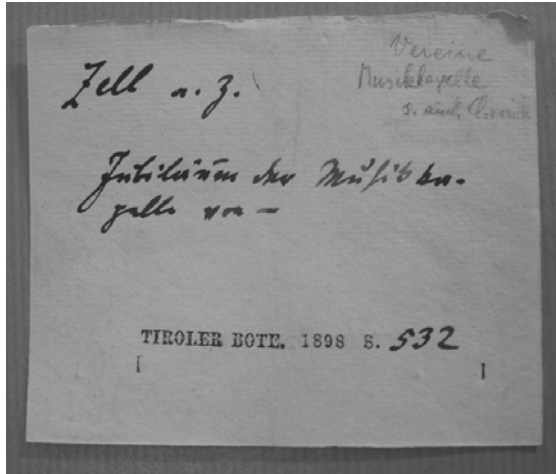 Vereine
Musikkapelle
s. auch Chronik
Zell a. Z.
Jubiläum der Musikka-
pelle von —
TIROLER BOTE. 1898 S. 532